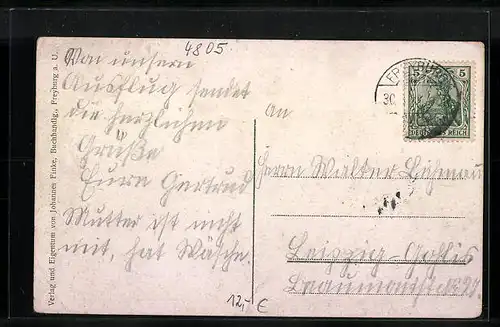 4805
Von unserm
Ausflug sendet
die herzlichen
Grüße
Eure Gertrud
Mutter ist nicht
mit, hat Wäsche.
12,- €
5 5
DEUTSCHES REICH
30.
An
Herrn Walder Lehmann
Leipzig-Gohlis
Verlag und Eigentum von Johannes Finke, Buchhandlg., Freyburg a. U.